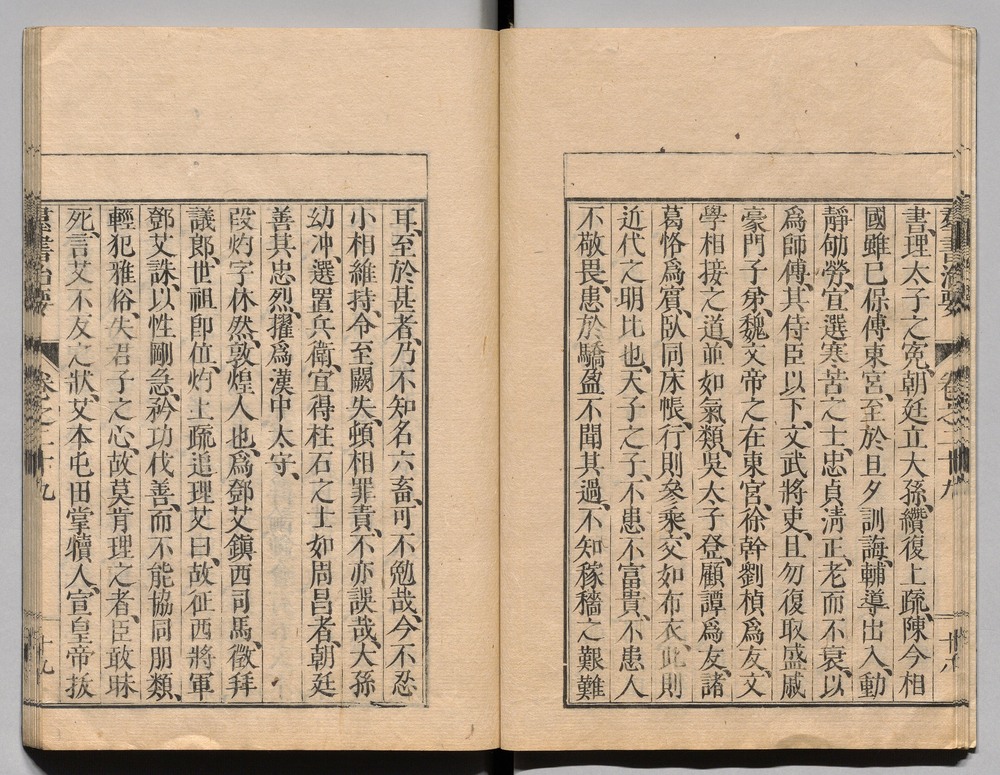 羣書治要 卷之二十九 十八
書、理太子之寃、朝廷立大孫、纘復上疏、陳今相
國雖已保傅東宮、至於旦夕訓誨、輔導出入、動
靜劬勞、宜選寒苦之士、忠貞淸正、老而不衰、以
爲師傅、其侍臣以下、文武將吏、且勿復取盛戚
豪門子弟、魏文帝之在東宮、徐幹劉楨爲友、文
學相接之道、並如氣類、吳太子登、顧譚爲友、諸
葛恪爲賓、臥同床帳、行則參乘、交如布衣、此則
近代之明比也、天子之子、不患不富貴、不患人
不敬畏、患於驕盈不聞其過、不知稼穡之艱難
耳、至於甚者、乃不知名六畜、可不勉哉、今不忍
小相維持、令至闕失、頓相罪責、不亦誤哉、大孫
幼冲、選置兵衛、宜得柱石之士如周昌者、朝廷
善其忠烈、擢爲漢中太守、
段灼字休然、敦煌人也、爲鄧艾鎭西司馬、徵拜
議郎、世祖卽位、灼上疏追理艾曰、故征西將軍
鄧艾誅、以性剛急、矜功伐善、而不能協同朋類、
輕犯雅俗、失君子之心、故莫肯理之者、臣敢昧
死、言艾不友之狀、艾本屯田掌犢人、宣皇帝拔
羣書治要 卷之二十九 十九